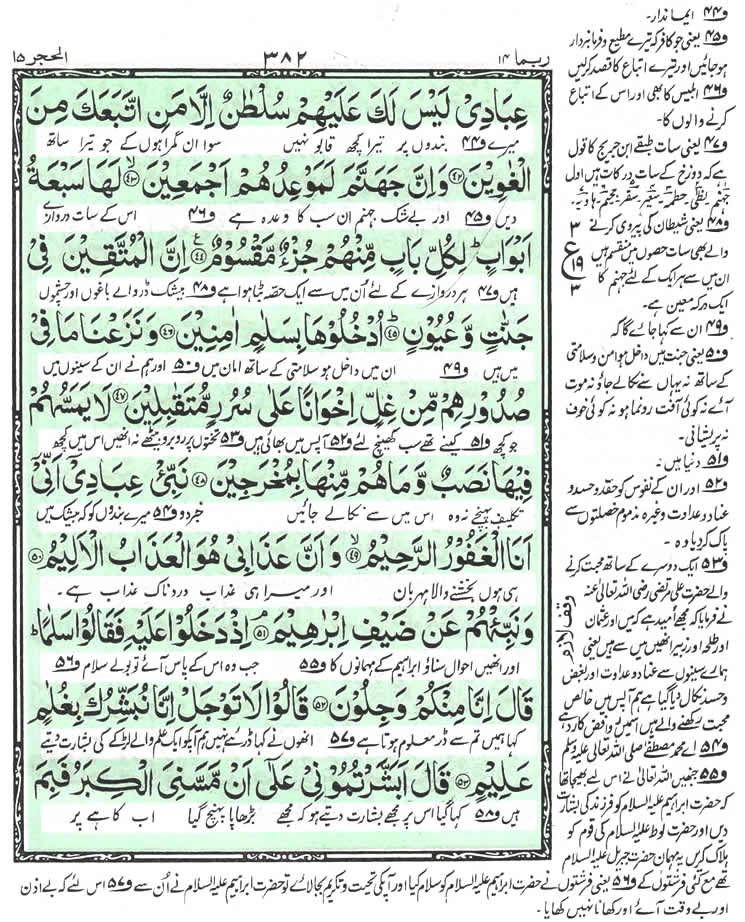 ربما ۱۴
۳۸۲
الحجر ۱۵
عِبَادِیْ لَیْسَ لَكَ عَلَیْهِمْ سُلْطٰنٌ اِلَّا مَنِ اتَّبَعَكَ مِنَ
میرے و۴۴ بندوں پر تیرا کچھ قابو نہیں سوا ان گمراہوں کے جو تیرا ساتھ
الْغٰوِیْنَ ﴿۴۲﴾ وَ اِنَّ جَهَنَّمَ لَمَوْعِدُهُمْ اَجْمَعِیْنَ ﴿۴۳﴾ لَهَا سَبْعَةُ
دیں و۴۵ اور بے شک جہنم ان سب کا وعدہ ہے و۴۶ اس کے سات دروازے
اَبْوَابٍؕ لِكُلِّ بَابٍ مِّنْهُمْ جُزْءٌ مَّقْسُوْمٌ ﴿۴۴﴾ اِنَّ الْمُتَّقِیْنَ فِیْ
ہیں و۴۷ ہر دروازے کے لئے ان میں سے ایک حصہ بٹا ہوا ہے و۴۸ بیشک ڈر والے باغوں اور چشموں
جَنّٰتٍ وَّ عُیُوْنٍ ﴿۴۵﴾ اُدْخُلُوْهَا بِسَلٰمٍ اٰمِنِیْنَ ﴿۴۶﴾ وَ نَزَعْنَا مَا فِیْ
میں ہیں و۴۹ ان میں داخل ہو سلامتی کے ساتھ امان میں و۵۰ اور ہم نے ان کے سینوں میں
صُدُوْرِهِمْ مِّنْ غِلٍّ اِخْوَانًا عَلٰی سُرُرٍ مُّتَقٰبِلِیْنَ ﴿۴۷﴾ لَا یَمَسُّهُمْ
جو کچھ و۵۱ کینے تھے سب کھینچ لئے و۵۲ آپس میں بھائی ہیں و۵۳ تختوں پر روبرو بیٹھے نہ انھیں اس میں کچھ
فِیْهَا نَصَبٌ وَّ مَا هُمْ مِّنْهَا بِمُخْرَجِیْنَ ﴿۴۸﴾ نَبِّئْ عِبَادِیْۤ اَنِّیْۤ
تکلیف پہنچے نہ وہ اس میں سے نکالے جائیں خبر دو و۵۴ میرے بندوں کو کہ بیشک میں
اَنَا الْغَفُوْرُ الرَّحِیْمُ ﴿۴۹﴾ وَ اَنَّ عَذَابِیْ هُوَ الْعَذَابُ الْاَلِیْمُ ﴿۵۰﴾
ہی ہوں بخشنے والا مہربان اور میرا ہی عذاب دردناک عذاب ہے ۔
وَ نَبِّئْهُمْ عَنْ ضَیْفِ اِبْرٰهِیْمَ ﴿۵۱﴾ اِذْ دَخَلُوْا عَلَیْهِ فَقَالُوْا سَلٰمًاؕ
اور انھیں احوال سناؤ ابراہیم کے مہمانوں کا و۵۵ جب وہ اس کے پاس آئے تو بولے سلام و۵۶
قَالَ اِنَّا مِنْكُمْ وَجِلُوْنَ ﴿۵۲﴾ قَالُوْا لَا تَوْجَلْ اِنَّا نُبَشِّرُكَ بِغُلٰمٍ
کہا ہمیں تم سے ڈر معلوم ہوتا ہے و۵۷ انھوں نے کہا ڈریے نہیں ہم آپکو ایک علم والے لڑکے کی بشارت دیتے
عَلِیْمٍ ﴿۵۳﴾ قَالَ اَبَشَّرْتُمُوْنِیْ عَلٰۤی اَنْ مَّسَّنِیَ الْكِبَرُ فَبِمَ
ہیں و۵۸ کہا کیا اس پر مجھے بشارت دیتے ہو کہ مجھے بڑھاپا پہنچ گیا اب کاہے پر
و۴۴ ایماندار ۔
و۴۵ یعنی جو کافر کہ تیرے مطیع و فرمانبردار
ہو جائیں اور تیرے اتباع کا قصد کرلیں
و۴۶ ابلیس کا بھی اور اس کے اتباع
کرنے والوں کا ۔
و۴۷ یعنی سات طبقے ابن جریج کا قول
ہے کہ دوزخ کے سات درکات ہیں اول
جہنم لظٰی حطمہ سعیر سقر جحیم ہاویہ ۔
و۴۸ یعنی شیطان کی پیروی کرنے
والے بھی سات حصوں میں منقسم ہیں
ان میں سے ہر ایک کے لئے جہنم کا
ایک درکہ معین ہے ۔
۳
ع
۱۹
۳
و۴۹ ان سے کہا جائے گا کہ
و۵۰ یعنی جنت میں داخل ہو امن و سلامتی
کے ساتھ نہ یہاں سے نکالے جاؤ نہ موت
آئے نہ کوئی آفت رونما ہو نہ کوئی خوف
نہ پریشانی ۔
و۵۱ دنیا میں ۔
و۵۲ اور ان کے نفوس کو حقد و حسد و
عناد و عداوت وغیرہ مذموم خصلتوں سے
پاک کردیا وہ ۔
و۵۳ ایک دوسرے کے ساتھ محبت کرنے
والے حضرت علی مرتضی رضی اللہ تعالیٰ عنہ
نے فرمایا کہ مجھے اُمید ہے کہ میں اور عثمان
اور طلحہ اور زبیر انھیں میں سے ہیں یعنی
ہمارے سینوں سے عناد و عداوت اور بغض
و حسد نکال دیا گیا ہے ہم آپس میں خالص
محبت رکھنے والے ہیں اسمیں روافض کا رد ہے
و۵۴ اے محمد مصطفٰے صلی اللہ تعالیٰ علیہ وسلم
و۵۵ جنھیں اللہ تعالیٰ نے اس لیے بھیجا تھا
کہ حضرت ابراہیم علیہ السلام کو فرزند کی بشارت
دیں اور حضرت لوط علیہ السلام کی قوم کو
ہلاک کریں یہ مہمان حضرت جبریل علیہ السلام
وقف لازم
تھے مع کئی فرشتوں کے و۵۶ یعنی فرشتوں نے حضرت ابراہیم علیہ السلام کو سلام کیا اور آپکی تحیت و تکریم بجا لائے تو حضرت ابراہیم علیہ السلام نے اُن سے و۵۷ اس لئے کہ بے اذن
اور بے وقت آئے اور کھانا نہیں کھایا ۔